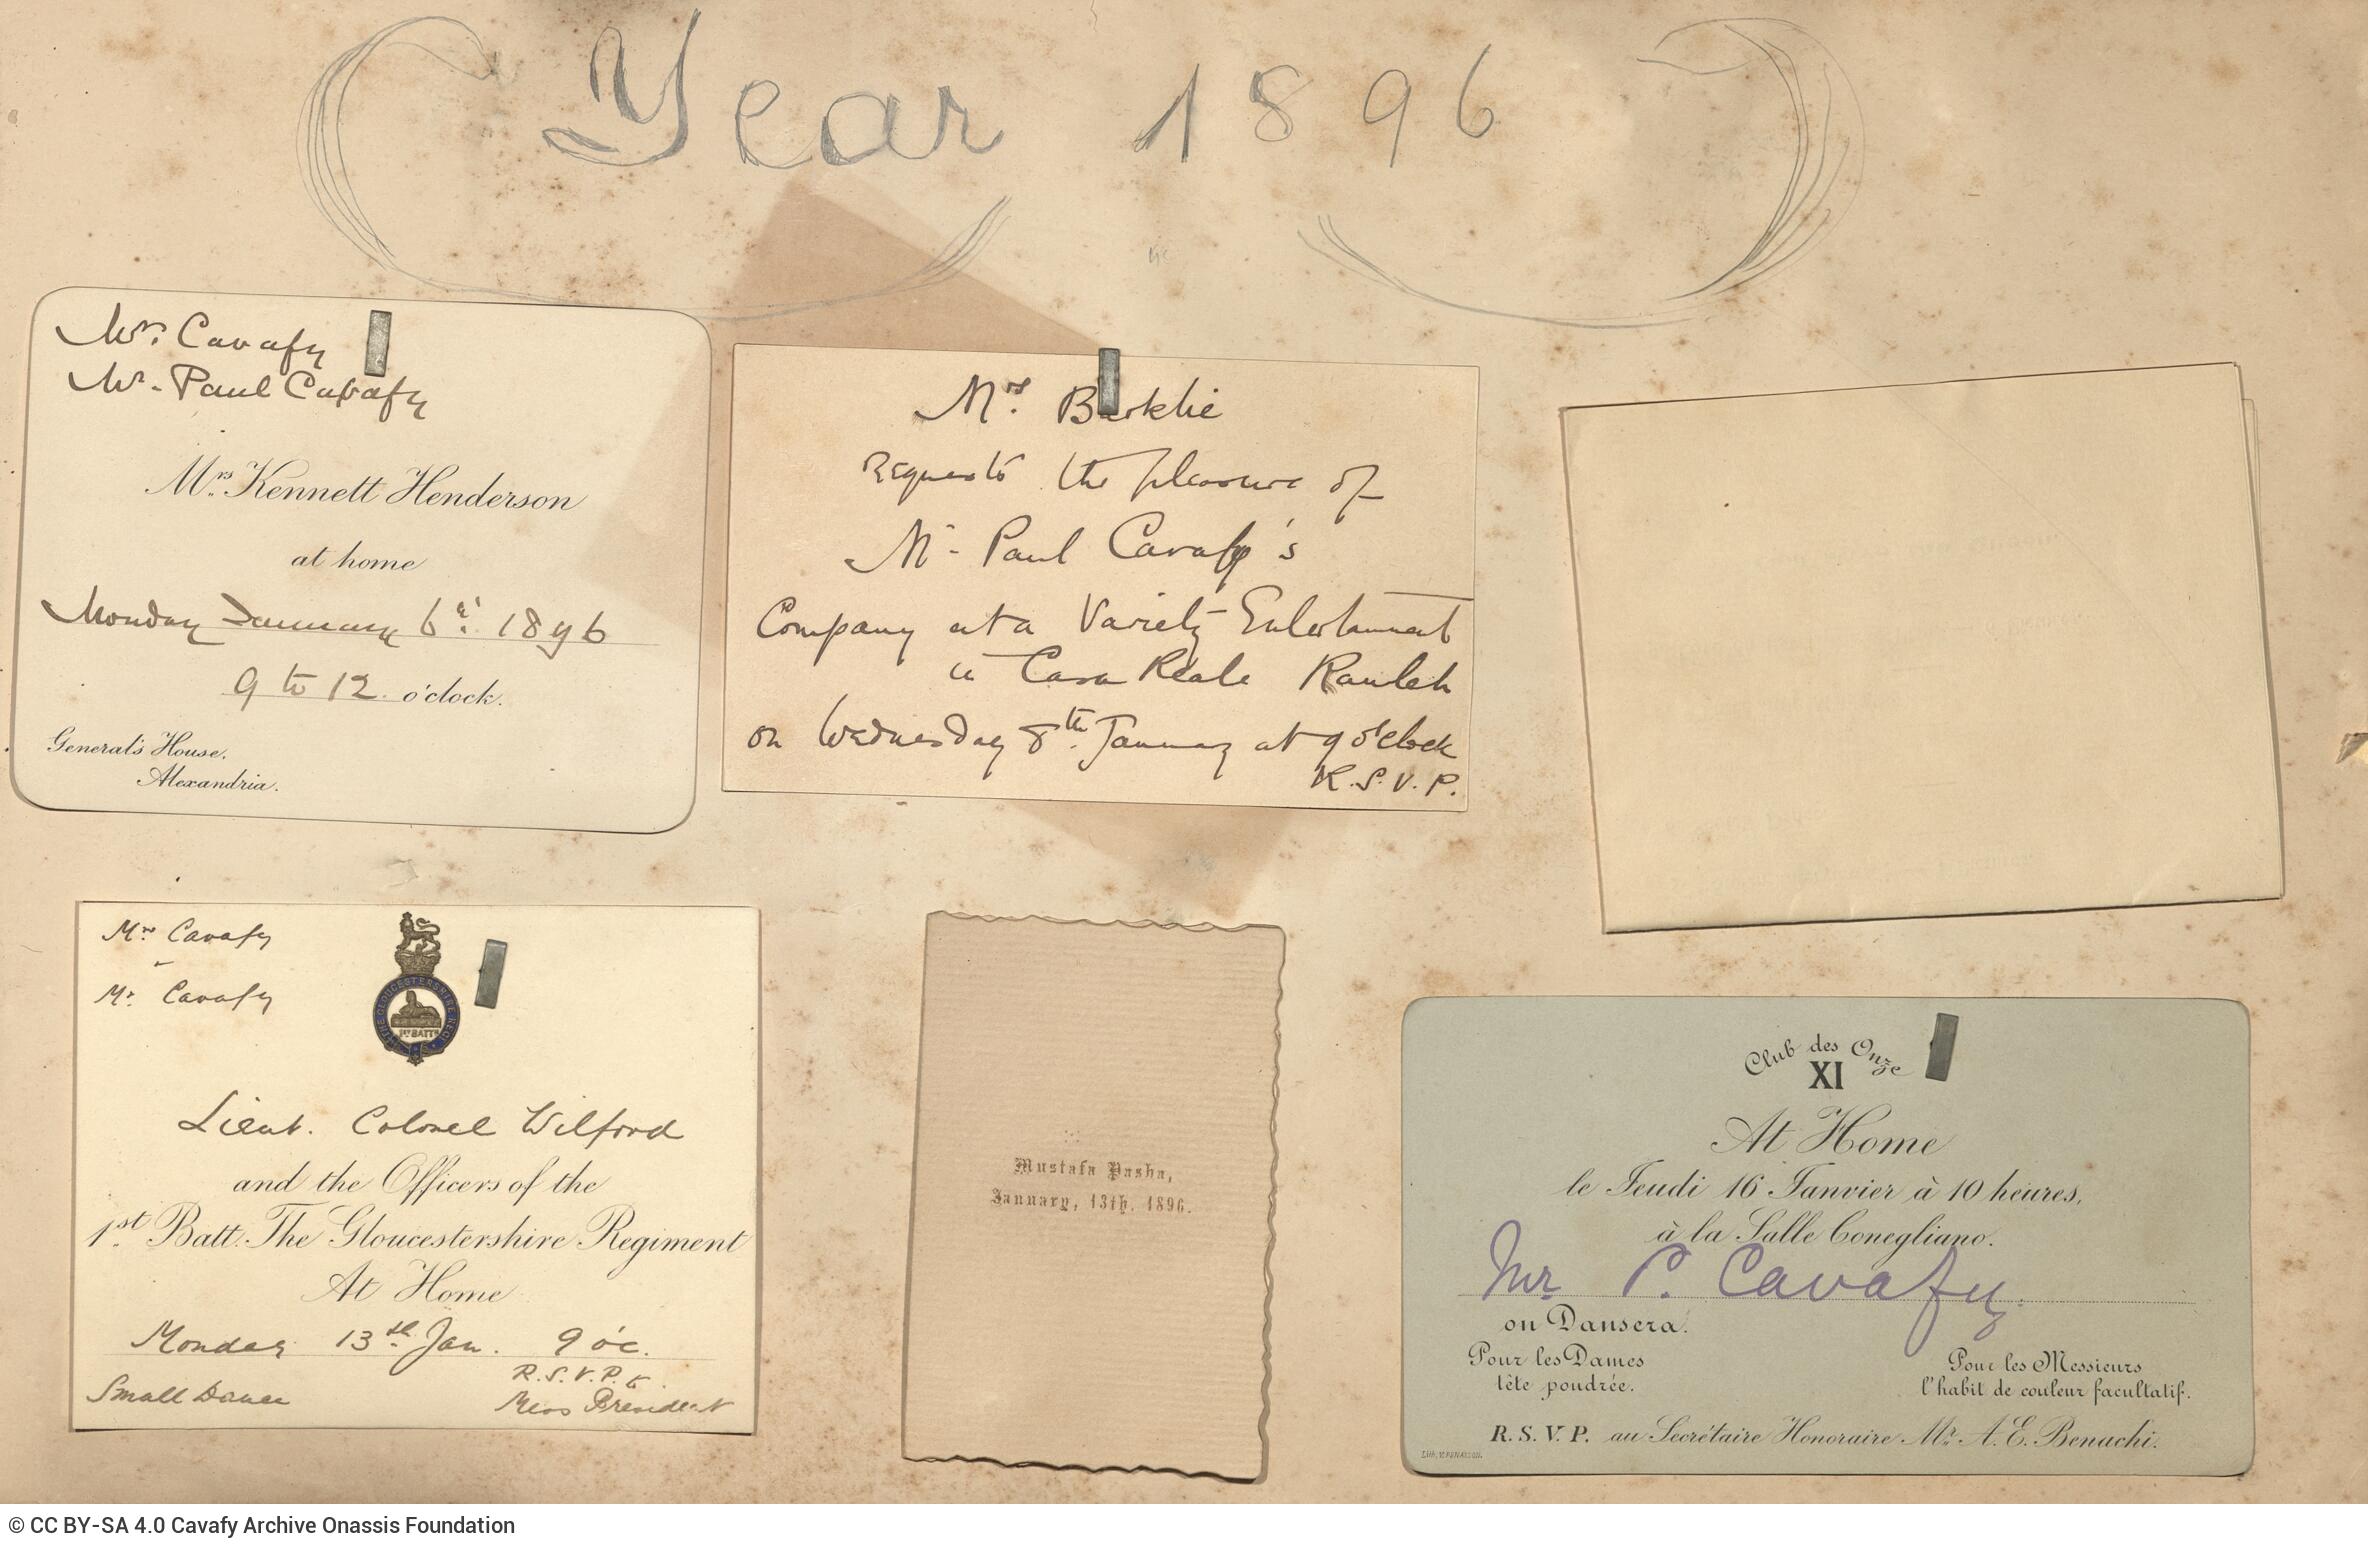 Year 1896
Mr. Cavafy
Mr. Paul Cavafy
Mrs. Kennett Henderson
at home
Monday January 6th. 1896
9 to 12 o'clock.
General's House.
Alexandria.
Mrs. Barklie
requests the pleasure of
Mr Paul Cavafy's
Company at a Variety Entertainment
Casa Reale Ramleh
on Wednesday 8th. January at 9 o'clock
R.S.V.P.
Mrs Cavafy
Mr. Cavafy
THE GLOUCESTERSHIRE REGT
1ST BATTN
Lieut. Colonel Wilford
and the Officers of the
1st. Batt. The Gloucestershire Regiment
At Home
Monday 13th. Jan. 9 o'c.
R.S.V.P. to
Small Dance
Mess President
Mustafa Pasha,
January, 13th. 1896.
Club des Onze
XI
At Home
le Jeudi 16 Janvier à 10 heures,
à la Salle Conegliano.
Mr P. Cavafy
on Dansera.
Pour les Dames
tête poudrée.
Pour les Messieurs
l'habit de couleur facultatif.
R.S.V.P. au Secrétaire Honoraire Mr. A. E. Benachi.
© CC BY-SA 4.0 Cavafy Archive Onassis Foundation